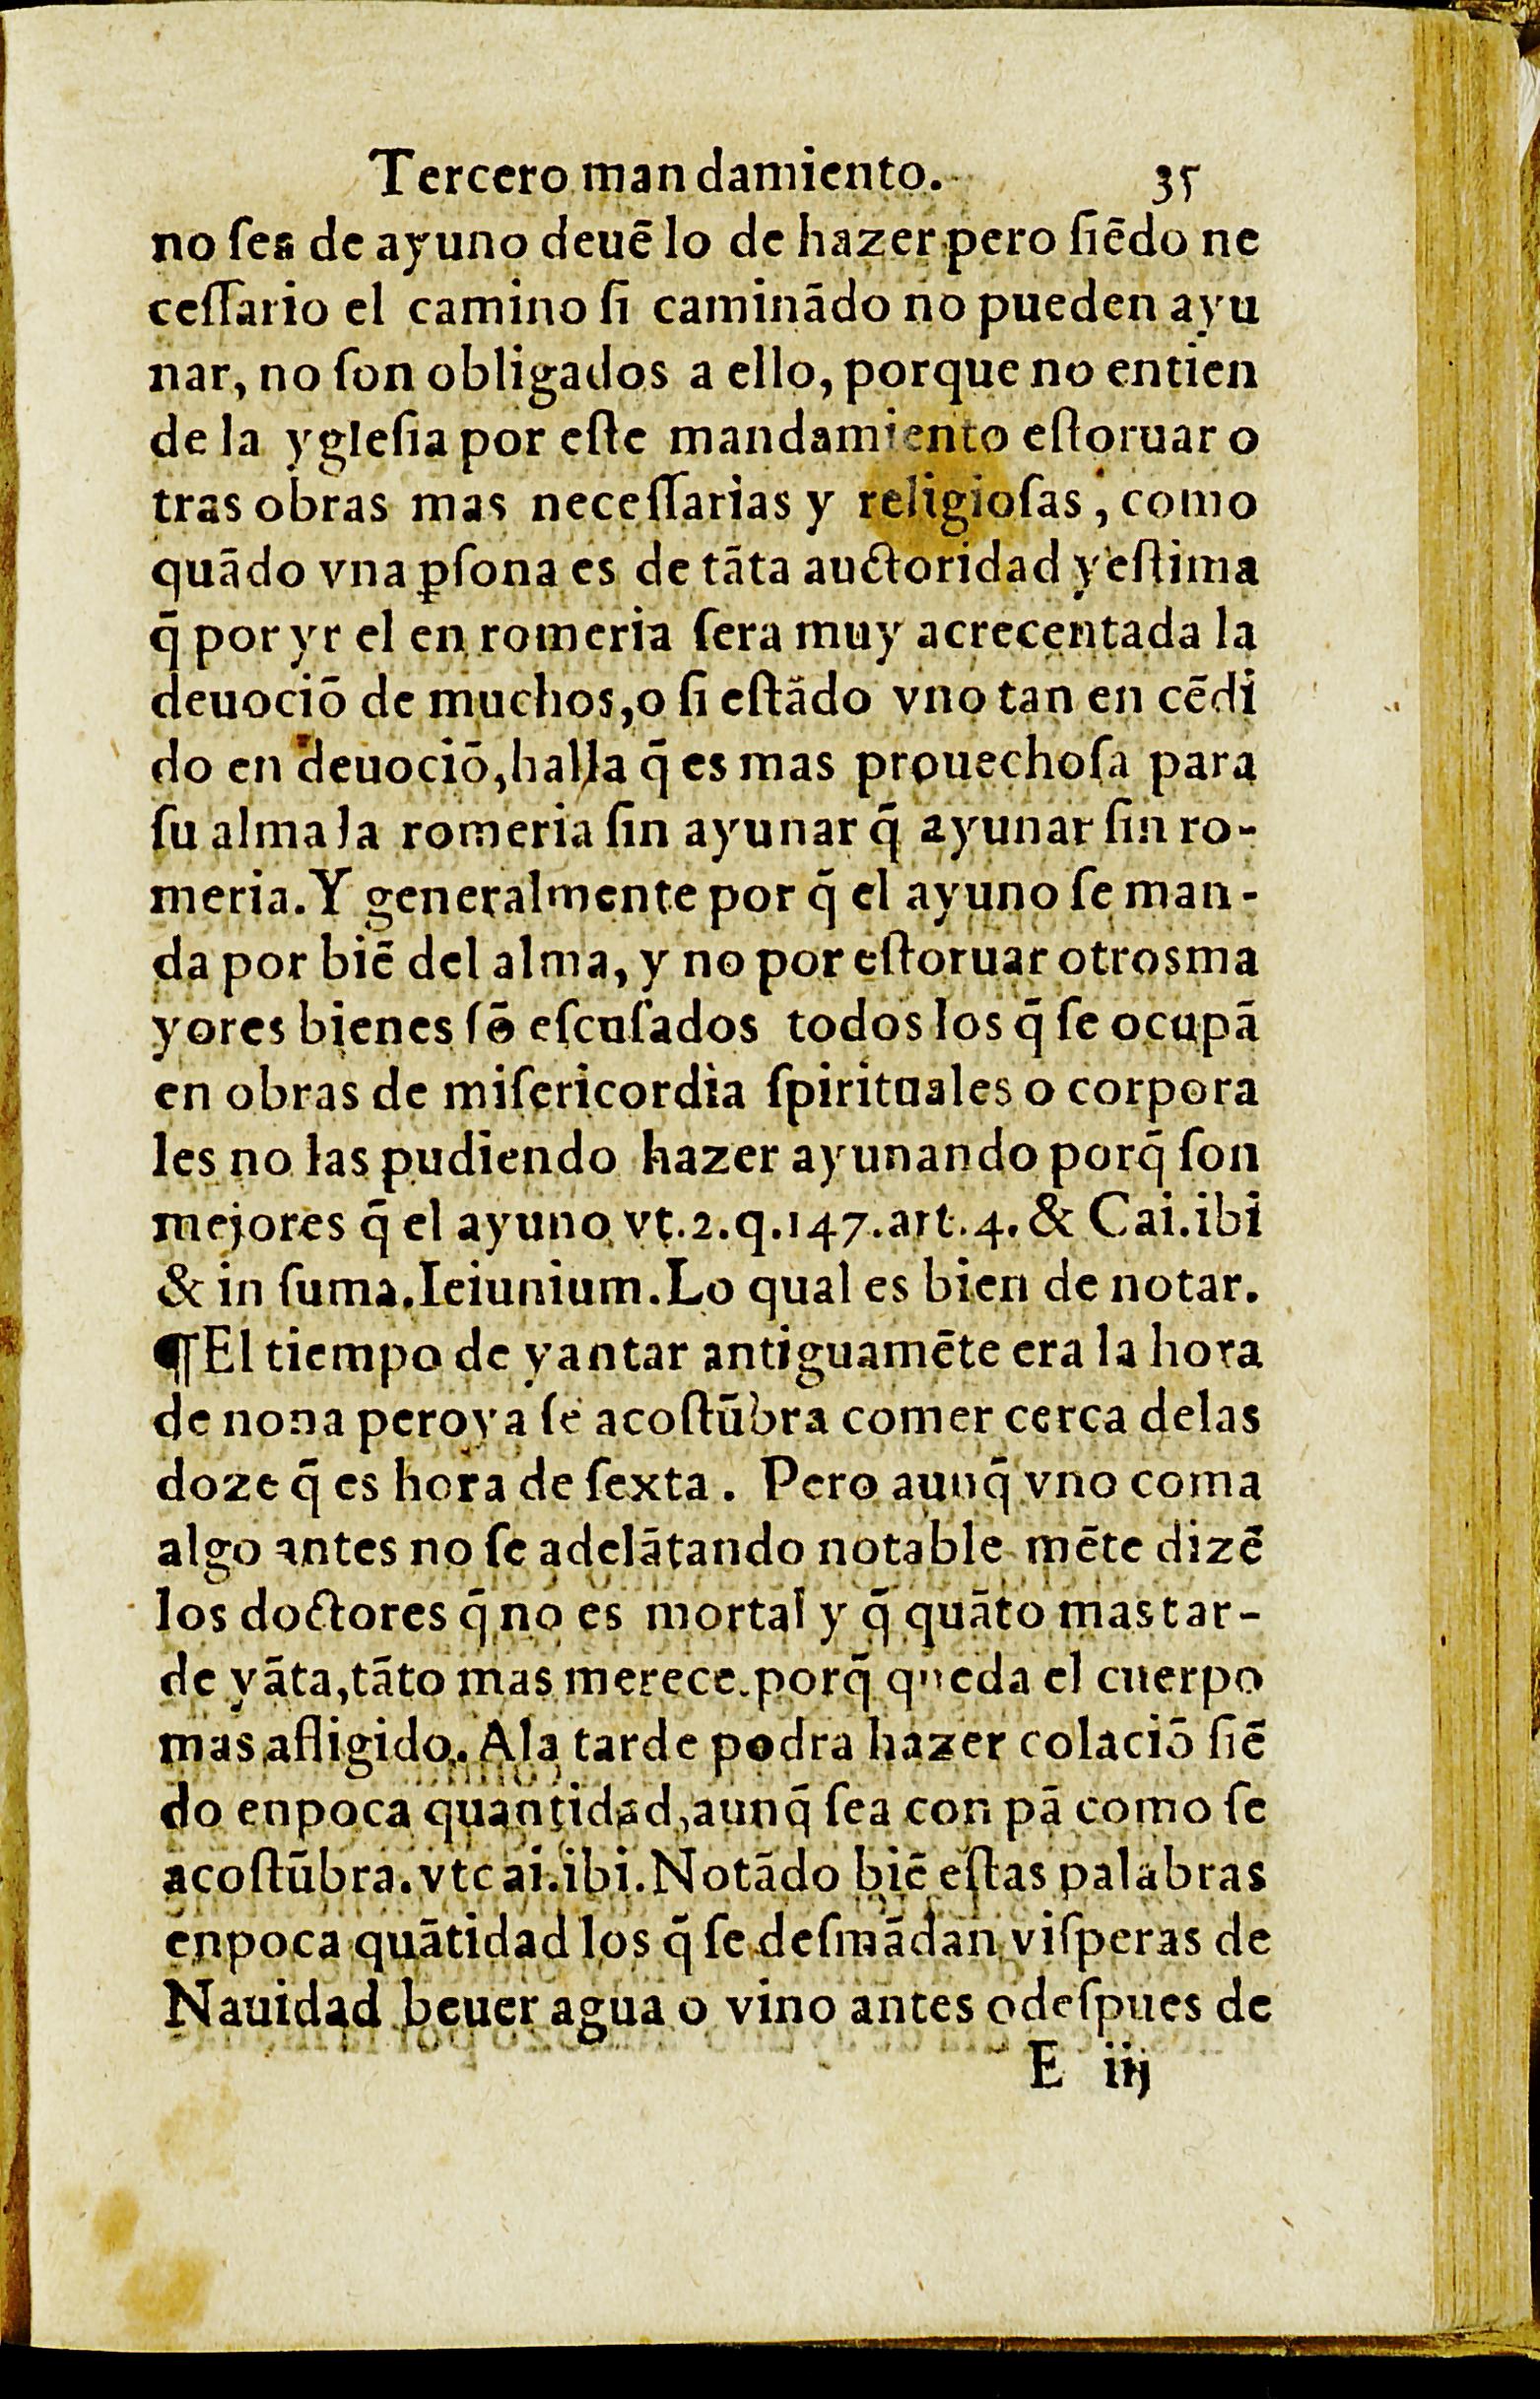 Tercero mandamiento. 35
no ſea de ayuno deuē lo de hazer pero ſiēdo ne
ceſſario el camino ſi caminādo no pueden ayu
nar, no ſon obligados a ello, porque no entien
de la ygleſia por eſte mandamiento eſtoruar o
tras obras mas neceſſarias y religioſas, como
quādo vna ꝑſona es de tāta auctoridad y eſtima
q̄ por yr el en romeria ſera muy acrecentada la
deuociō de muchos, o ſi eſtādo vno tan en cēdi
do en deuociō, halla q̄ es mas prouechoſa para
ſu alma la romeria ſin ayunar q̄ ayunar ſin ro-
meria. Y generalmente por q̄ el ayuno ſe man-
da por biē del alma, y no por eſtoruar otrosma
yores bienes ſō eſcuſados todos los q̄ ſe ocupā
en obras de miſericordia ſpirituales o corpora
les no las pudiendo hazer ayunando porq̄ ſon
mejores q̄ el ayuno vt.2.q.147.art.4. & Cai.ibi
& in ſuma. Ieiunium. Lo qual es bien de notar.
¶El tiempo de yantar antiguamēte era la hora
de nona peroya ſe acoſtūbra comer cerca delas
doze q̄ es hora de ſexta. Pero aunq̄ vno coma
algo antes no ſe adelātando notable mēte dizē
los doctores q̄ no es mortal y q̄ quāto mas tar-
de yāta, tāto mas merece. porq̄ queda el cuerpo
mas afligido. Ala tarde podra hazer colaciō ſiē
do enpoca quantidad, aunq̄ ſea con pā como ſe
acoſtūbra. vtcai.ibi. Notādo biē eſtas palabras
enpoca quātidad los q̄ ſe deſmādan viſperas de
Nauidad beuer agua o vino antes odeſpues de
E iij